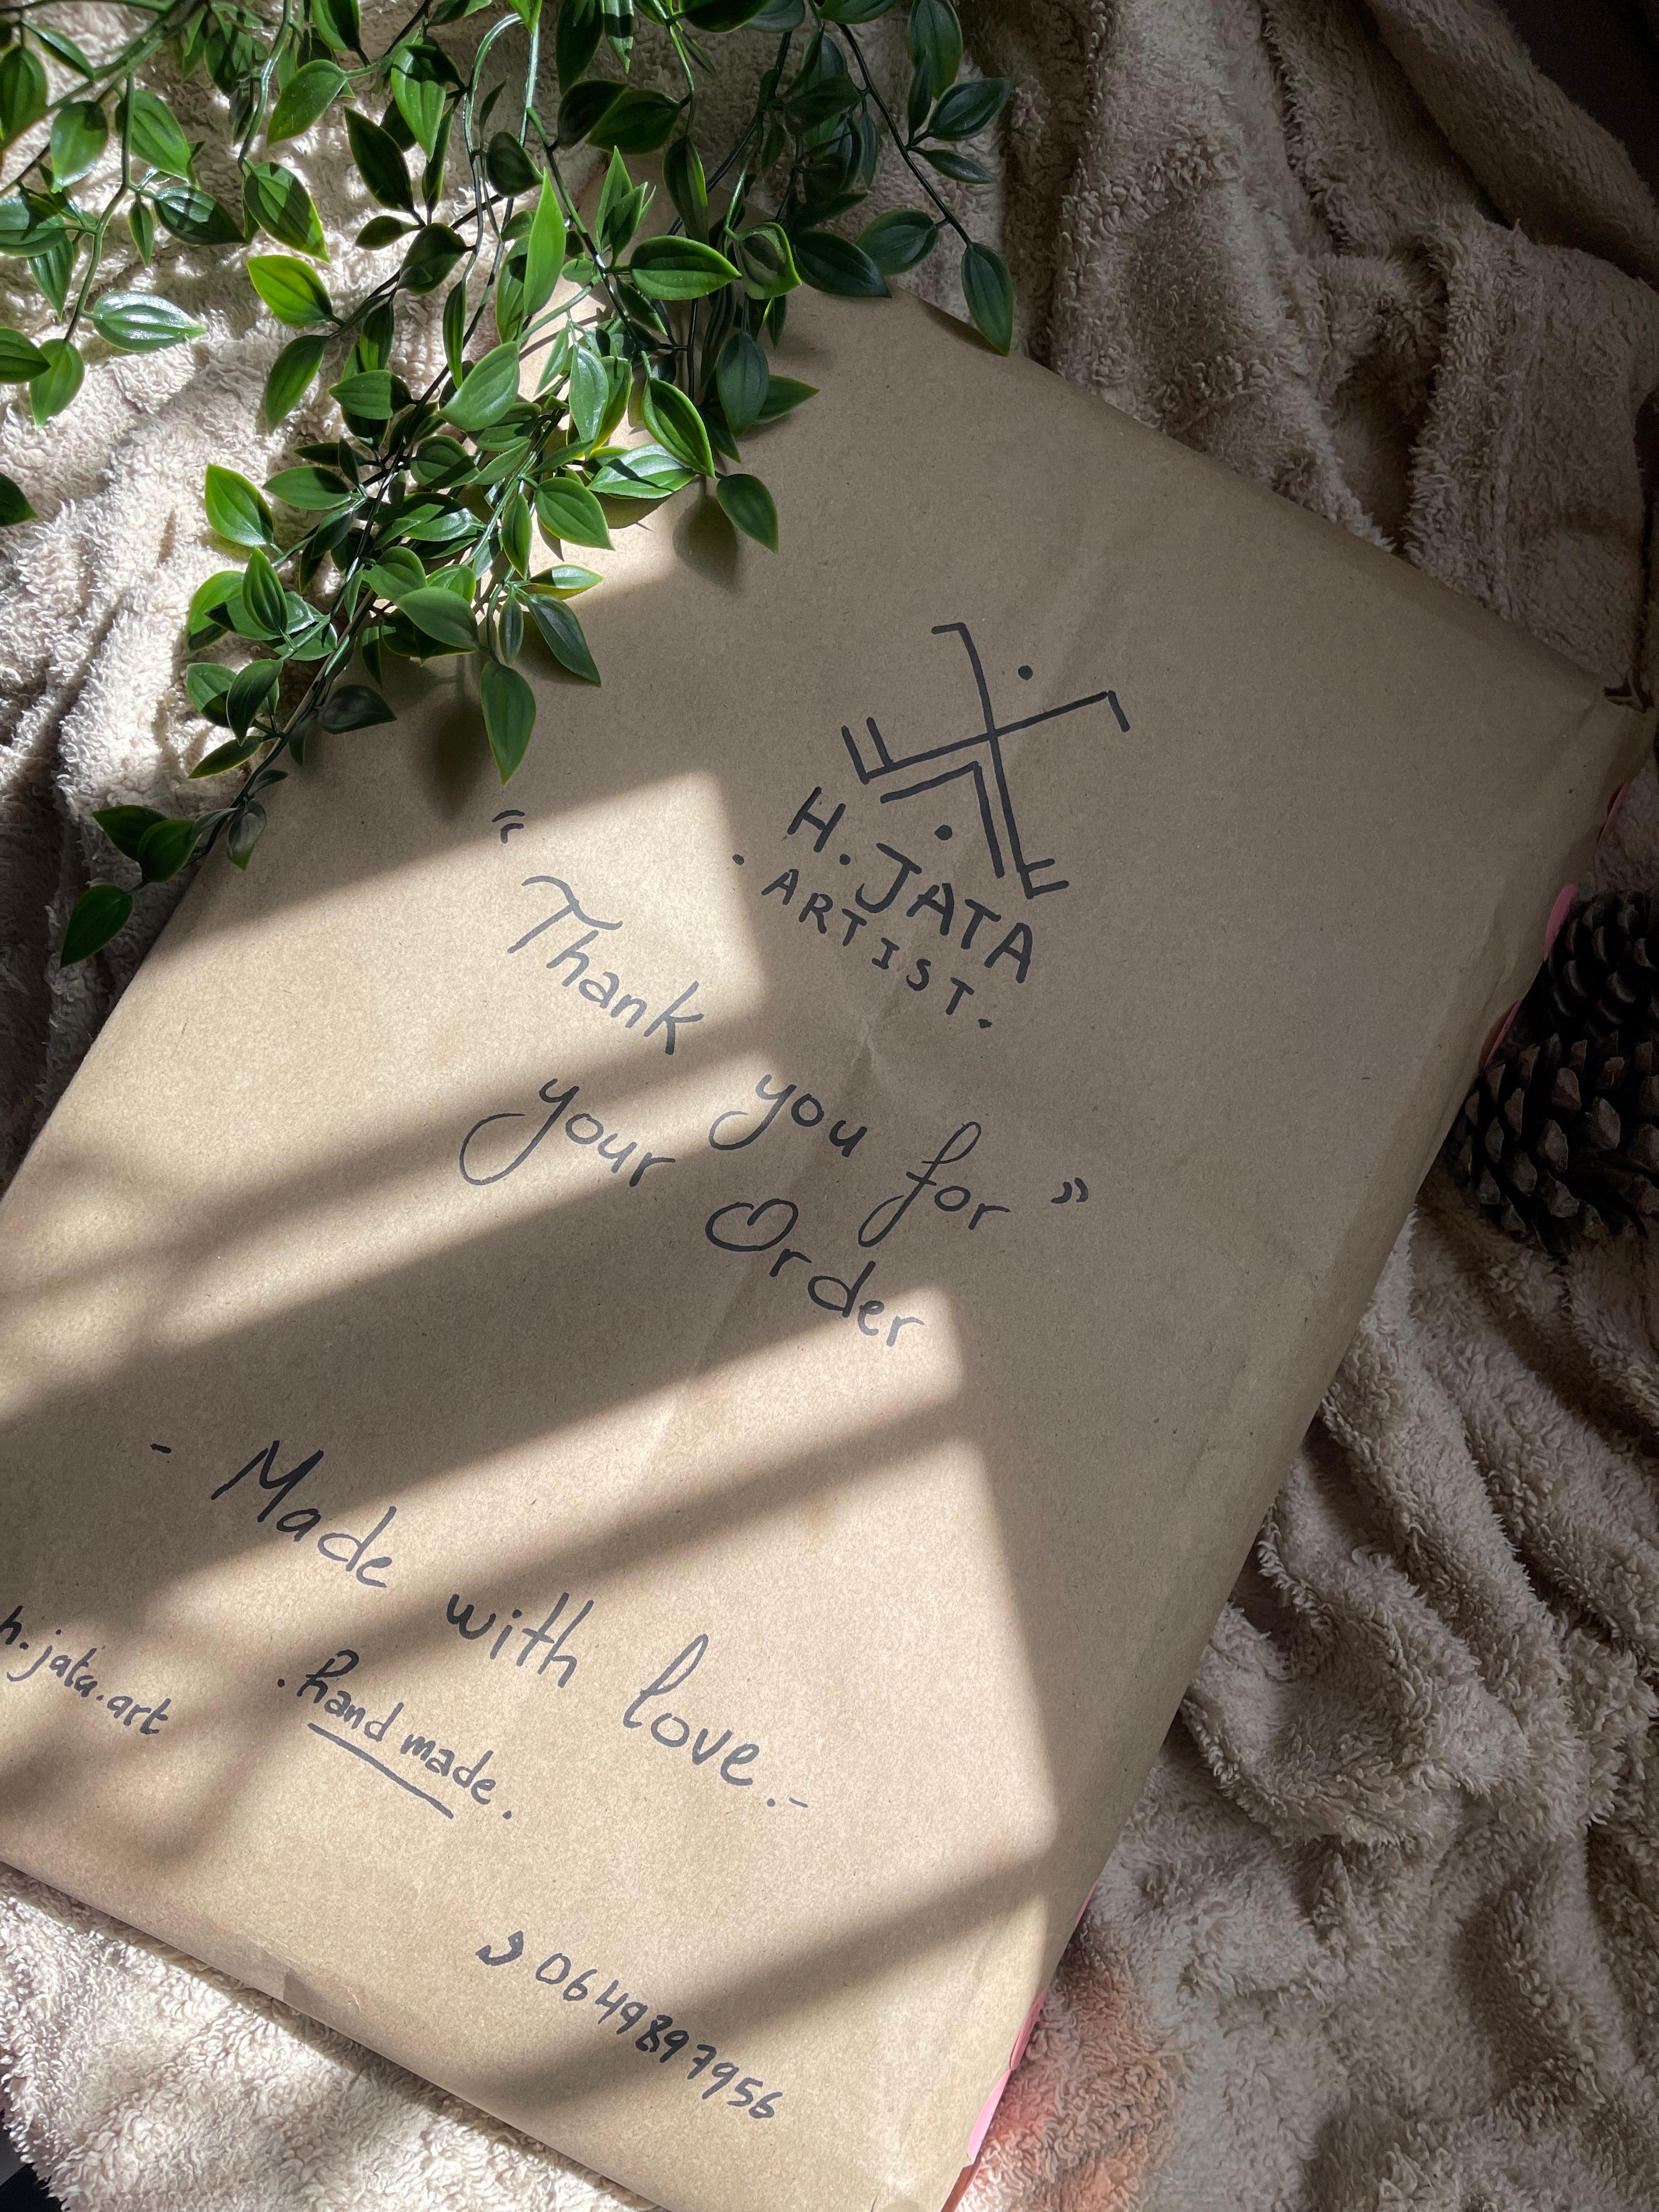 H. JATA
. ARTIST.
" Thank you for "
your Order
- Made with love. -
h.jata.art
. hand made.
0649897956